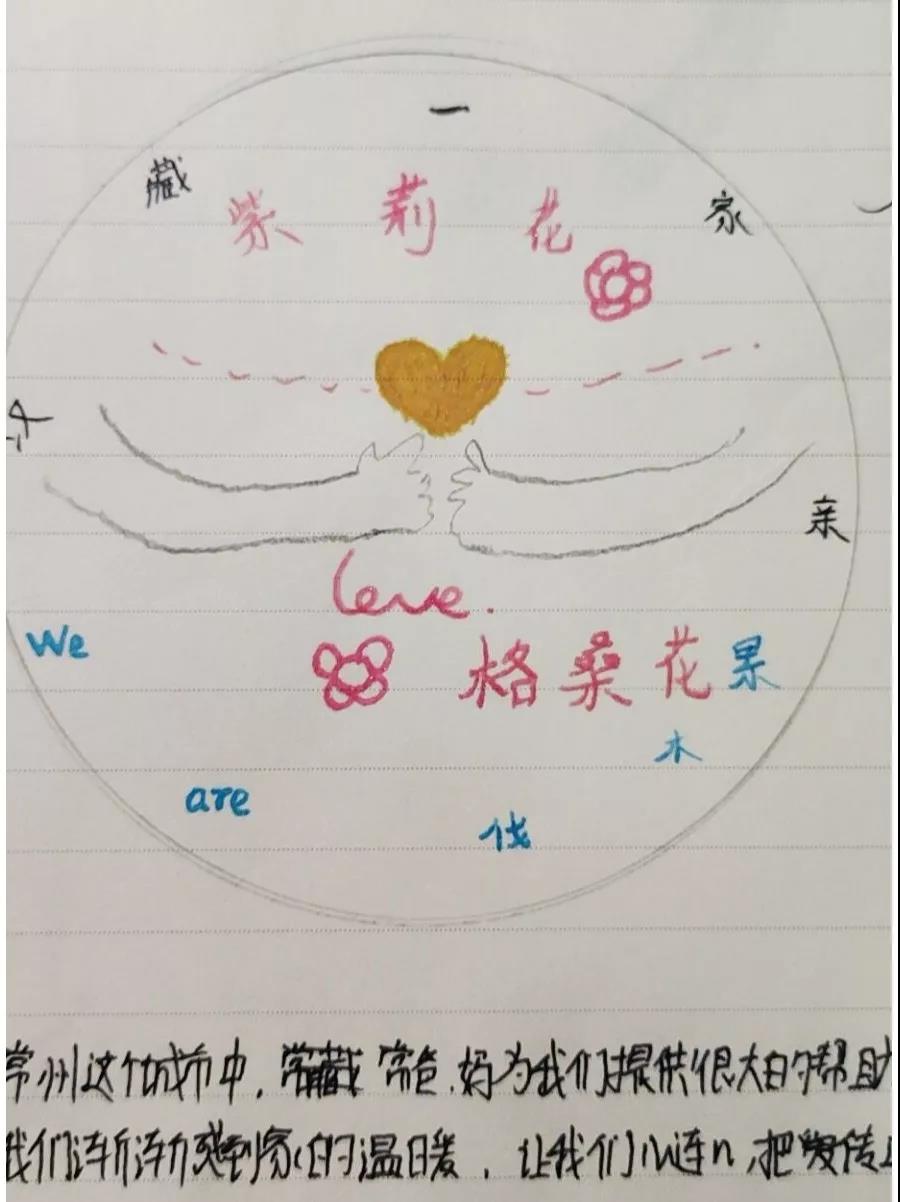 一
藏
紫 莉 花
家
亲
love.
We
格桑花
果
木
are
伐
常州这个城市中，常藏 妈为我们提供很大的帮助
我们渐渐感到家的温暖，让我们心连心，把爱传